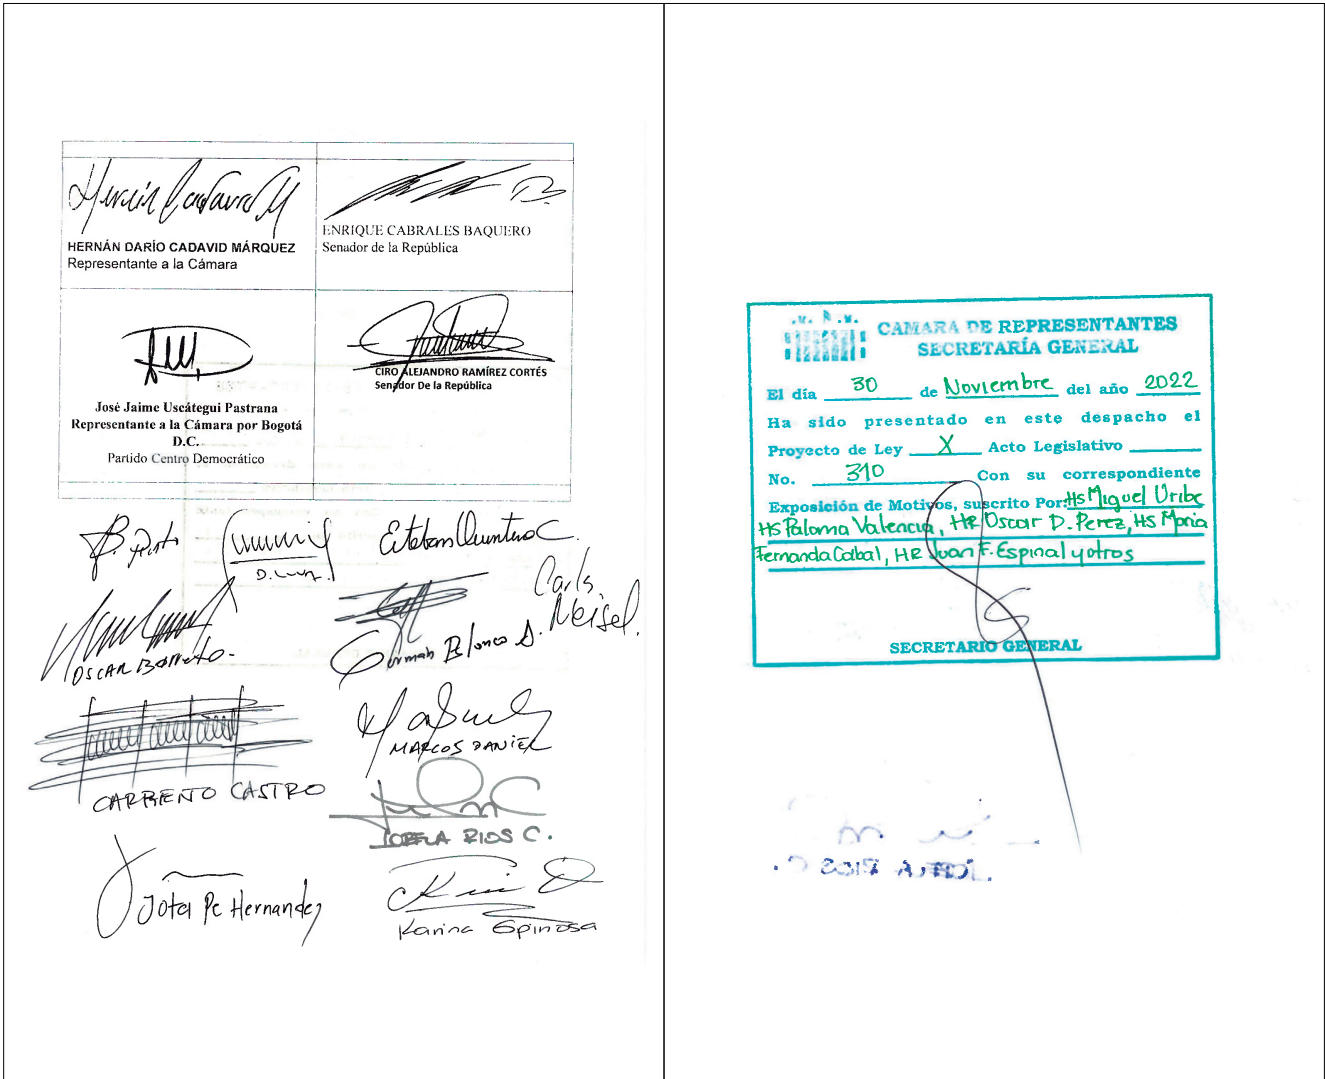 HERNÁN DARÍO CADAVID MÁRQUEZ
Representante a la Cámara
ENRIQUE CABRALES BAQUERO
Senador de la República
José Jaime Uscátegui Pastrana
Representante a la Cámara por Bogotá
D.C.
Partido Centro Democrático
CIRO ALEJANDRO RAMÍREZ CORTÉS
Senador De la República
Esteban Quintero C.
Carlos
Meisel.
OSCAR Barreto.
German Blanco A.
MARCOS DANIEL
CARREÑO CASTRO
RIOS C.
Jota Pe Hernandez
Karina Espinosa
CAMARA DE REPRESENTANTES
SECRETARÍA GENERAL
El día 30 de Noviembre del año 2022
Ha sido presentado en este despacho el
Proyecto de Ley X Acto Legislativo
No. 310 Con su correspondiente
Exposición de Motivos, suscrito Por: HS Miguel Uribe
HS Paloma Valencia, HR Oscar D. Perez, HS Maria
Fernanda Cabal, HR Juan F. Espinal y otros
SECRETARIO GENERAL